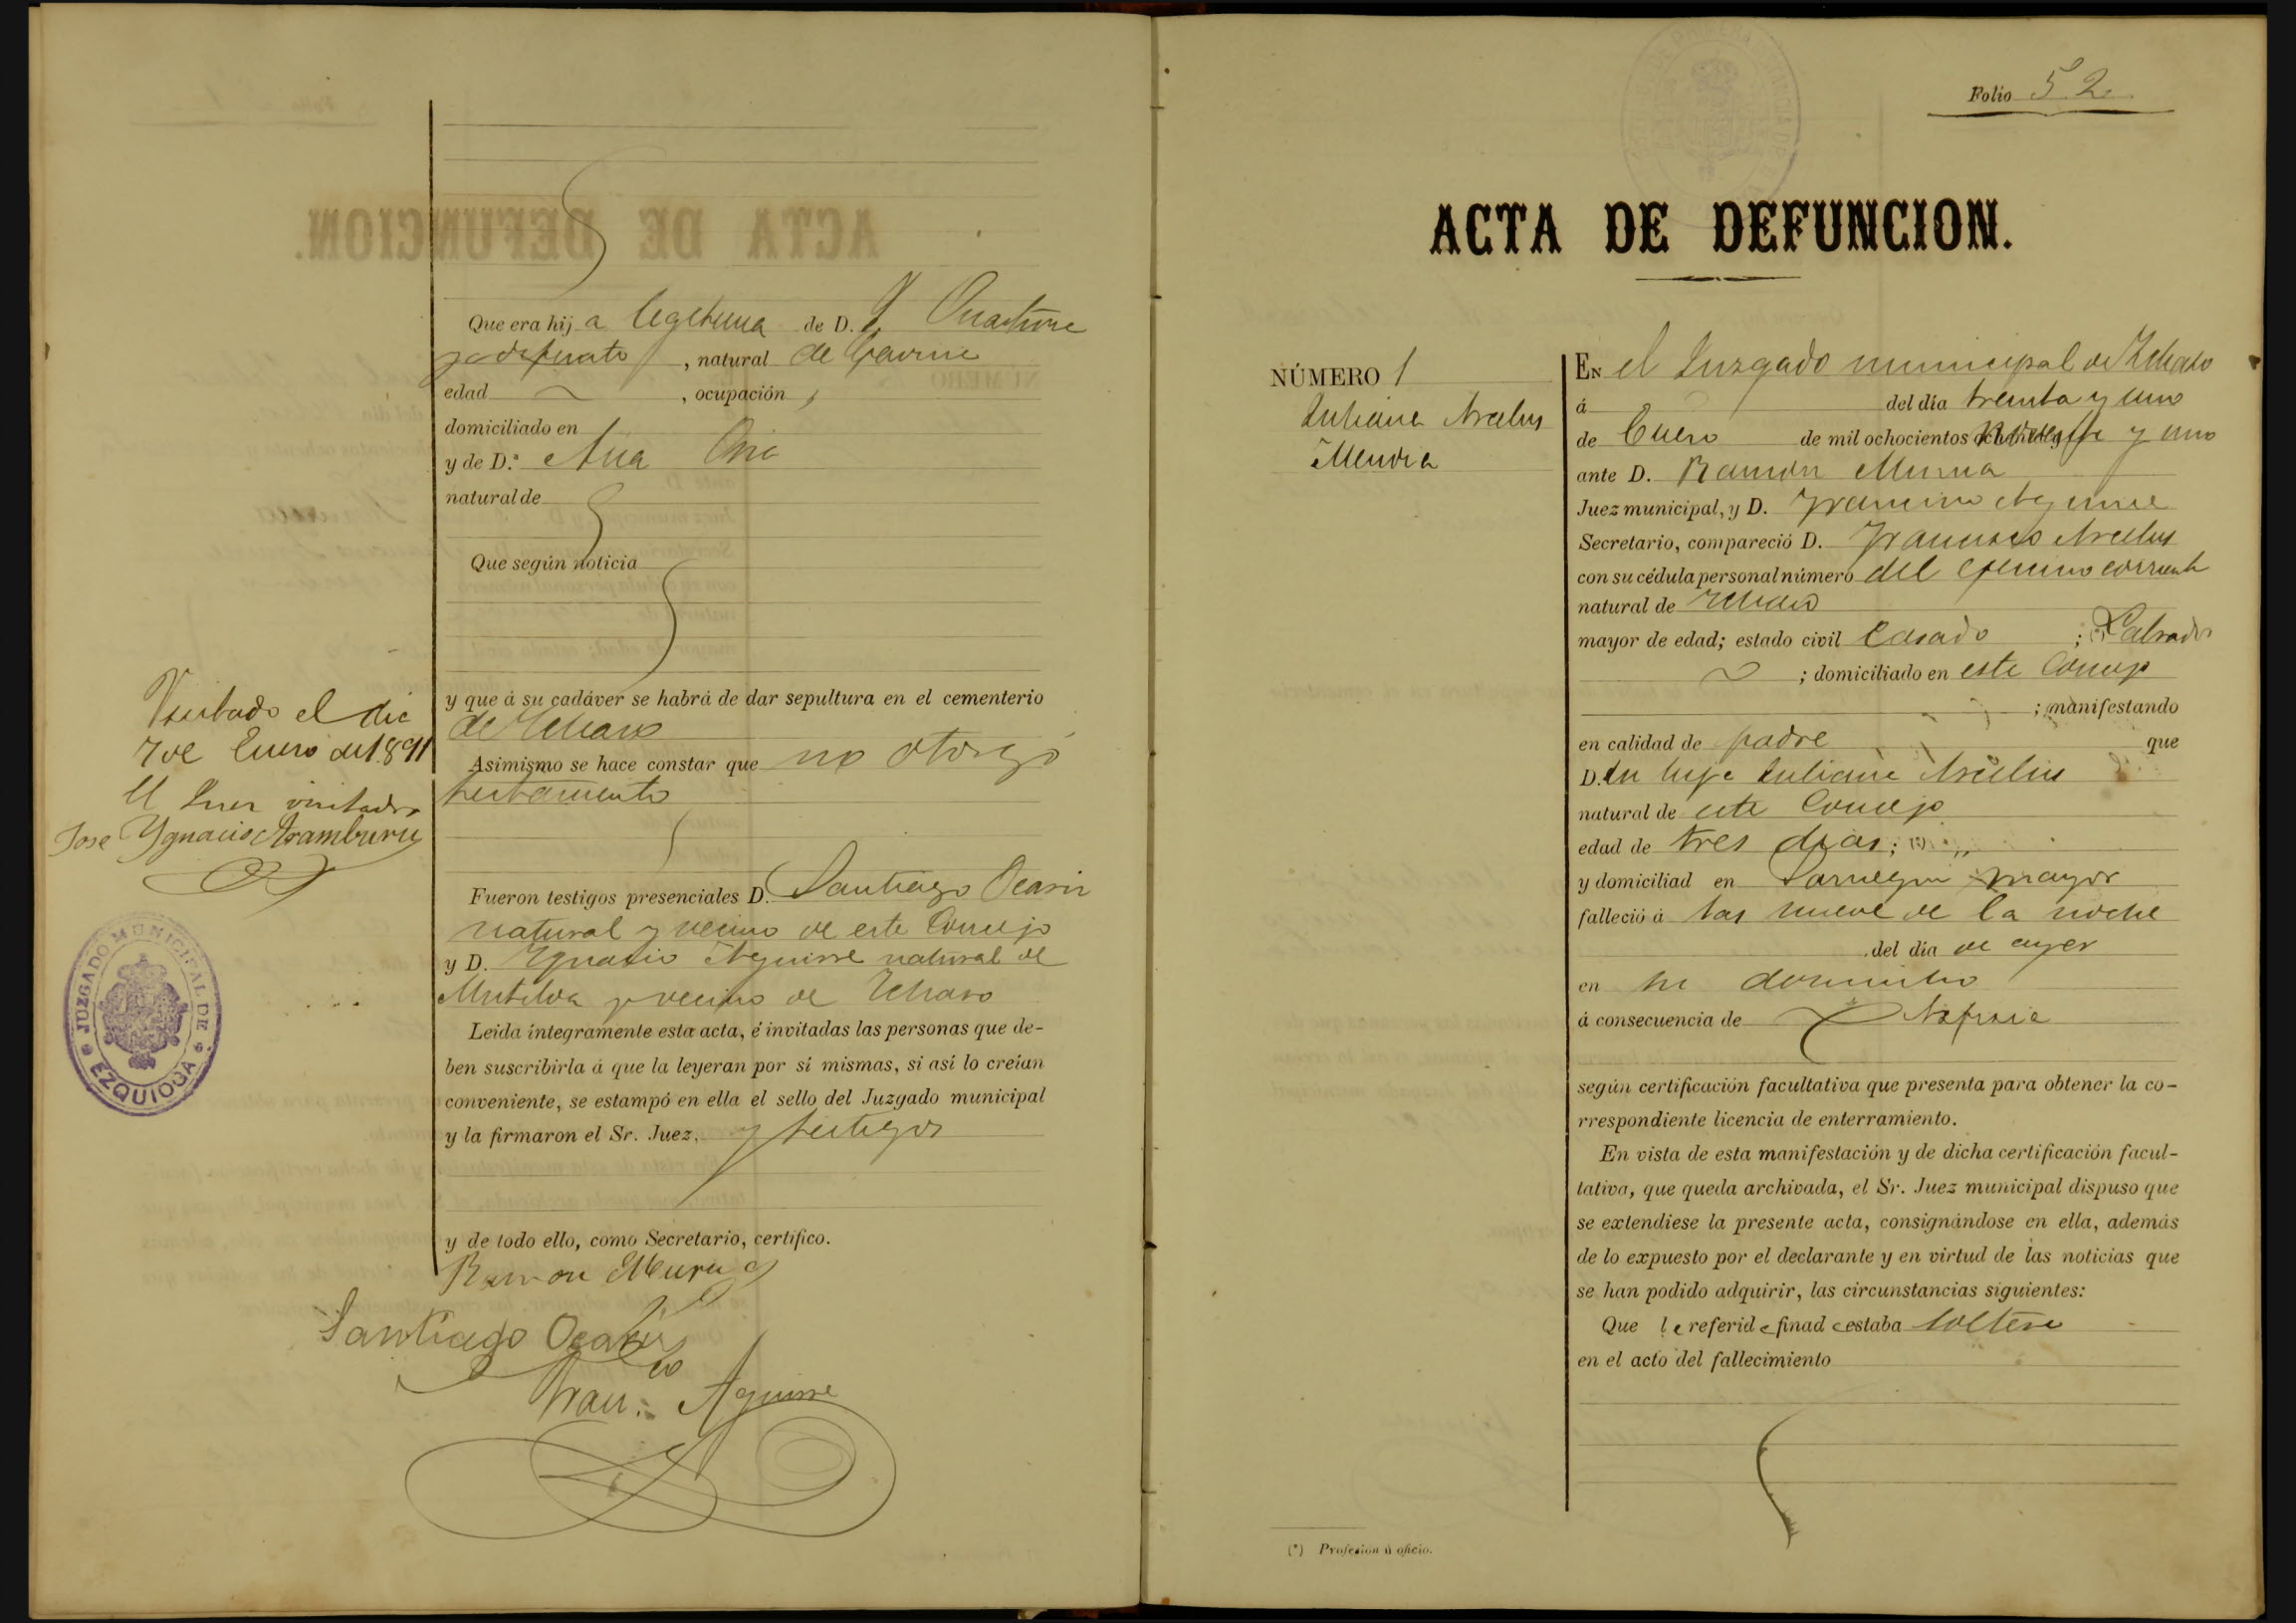 Que era hij a legitima de D.
ya difunto, natural de Gaviria
edad , ocupación
domiciliado en
y de D.ª Ana Oria
natural de
Que según noticia
y que á su cadáver se habrá de dar sepultura en el cementerio
de Ichaso
Asimismo se hace constar que no otorgó
testamento
Fueron testigos presenciales D. Santiago Ocariz
natural y vecino de este Concejo
y D. Ygnacio Aguirre natural de
Mutiloa y vecino de Ichaso
Leida integramente esta acta, é invitadas las personas que de-
ben suscribirla á que la leyeran por sí mismas, si así lo creían
conveniente, se estampó en ella el sello del Juzgado municipal
y la firmaron el Sr. Juez, y testigos
y de todo ello, como Secretario, certifico.
Ramon Murua
Santiago Ocariz
Fran.co Aguirre
Visitado el dia
7 de Enero de 1.891
El Juez visitador
Jose Ygnacio Aramburu
JUZGADO MUNICIPAL DE
EZQUIOGA
Folio 52
ACTA DE DEFUNCION.
NÚMERO 1
Juliana Arcelus
Mendia
EN el Juzgado municipal de Ichaso
á del día treinta y uno
de Enero de mil ochocientos noventa y uno
ante D. Ramón Murua
Juez municipal, y D. Francisco Aguirre
Secretario, compareció D. Francisco Arcelus
con su cédula personal número del ejercicio corriente
natural de Ichaso
mayor de edad; estado civil Casado ; (*) Labrador
; domiciliado en este Concejo
; manifestando
en calidad de padre que
D. su hija Juliana Arcelus
natural de este Concejo
edad de tres dias; (*) "
y domiciliad en mayor
falleció á las nueve de la noche
del día de ayer
en su domicilio
á consecuencia de
según certificación facultativa que presenta para obtener la co-
rrespondiente licencia de enterramiento.
En vista de esta manifestación y de dicha certificación facul-
tativa, que queda archivada, el Sr. Juez municipal dispuso que
se extendiese la presente acta, consignándose en ella, además
de lo expuesto por el declarante y en virtud de las noticias que
se han podido adquirir, las circunstancias siguientes:
Que la referida finada estaba soltera
en el acto del fallecimiento
(*) Profesión ú oficio.